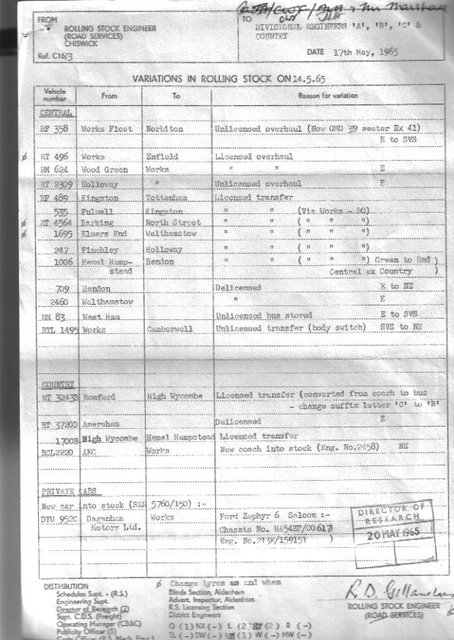 FROM
ROLLING STOCK ENGINEER
(ROAD SERVICES)
CHISWICK
Ref. C16/3
TO
DIVISIONAL ENGINEERS 'A', 'B', 'C' &
COUNTRY
DATE 17th May, 1965
VARIATIONS IN ROLLING STOCK ON 14.5.65
Vehicle number From To Reason for variation
CENTRAL
RF 358 Works Float Norbiton Unlicensed overhaul (Now OMO 39 seater Ex 41)
E to SVS
ø RT 496 Works Enfield Licensed overhaul
RM 624 Wood Green Works " " E
RT 2309 Holloway " Unlicensed overhaul E
RF 489 Kingston Tottenham Licensed transfer
535 Fulwell Kingston " " (Via Works - BG)
ø RT 4564 Barking North Street " " ( " " " )
ø 1695 Elmers End Walthamstow " " ( " " " )
247 Finchley Holloway " " ( " " " )
1006 Hemel Hemp-
stead Hendon " " ( " " " ) Green to Red )
Central ex Country )
709 Hendon Delicensed E to NE
2460 Walthamstow " E
RM 83 West Ham Unlicensed bus stored E to SVS
RTL 1495 Works Camberwell Unlicensed transfer (body switch) SVS to NE
COUNTRY
RT 3243B Romford High Wycombe Licensed transfer (converted from coach to bus
- change suffix letter 'C' to 'B'
RT 3720B Amersham Delicensed E
1700B High Wycombe Hemel Hempstead Licensed transfer
RCL2220 AEC Works New coach into stock (Eng. No.2458) NE
PRIVATE CARS
New car into stock (SER 5760/150) :-
DYU 952C Dagenham
Motors Ltd. Works Ford Zephyr 6 Saloon :-
Chassis No. BA54EP/00617)
Eng. No.
DIRECTOR OF
RESEARCH
20 MAY 1965
DISTRIBUTION
Schedules Supt. - (R.S.)
Engineering Supt.
Director of Research (2)
Supt. C.D.S. (Freight)
Operating Manager (CB&C)
Publicity Officer (3)
ø Change tyres as and when
Blinds Section, Aldenham
Advert. Inspector, Aldenham
R.S. Licensing Section
District Engineers
ROLLING STOCK ENGINEER
(ROAD SERVICES)